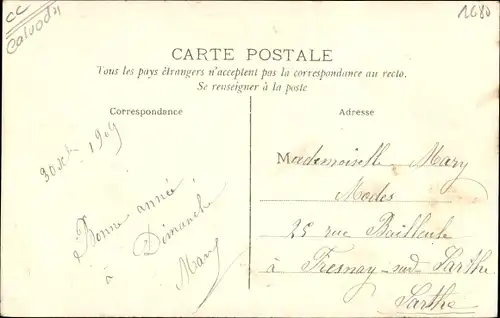 CC
Calvados
1680
CARTE POSTALE
Tous les pays étrangers n'acceptent pas la correspondance au recto.
Se renseigner à la poste
Correspondance
Adresse
30 Xbre 1909
Bonne année,
à Dimanche
Mary
Mademoiselle Mary
Modes
25 rue Bailleul
à Fresnay-sur-Sarthe
Sarthe